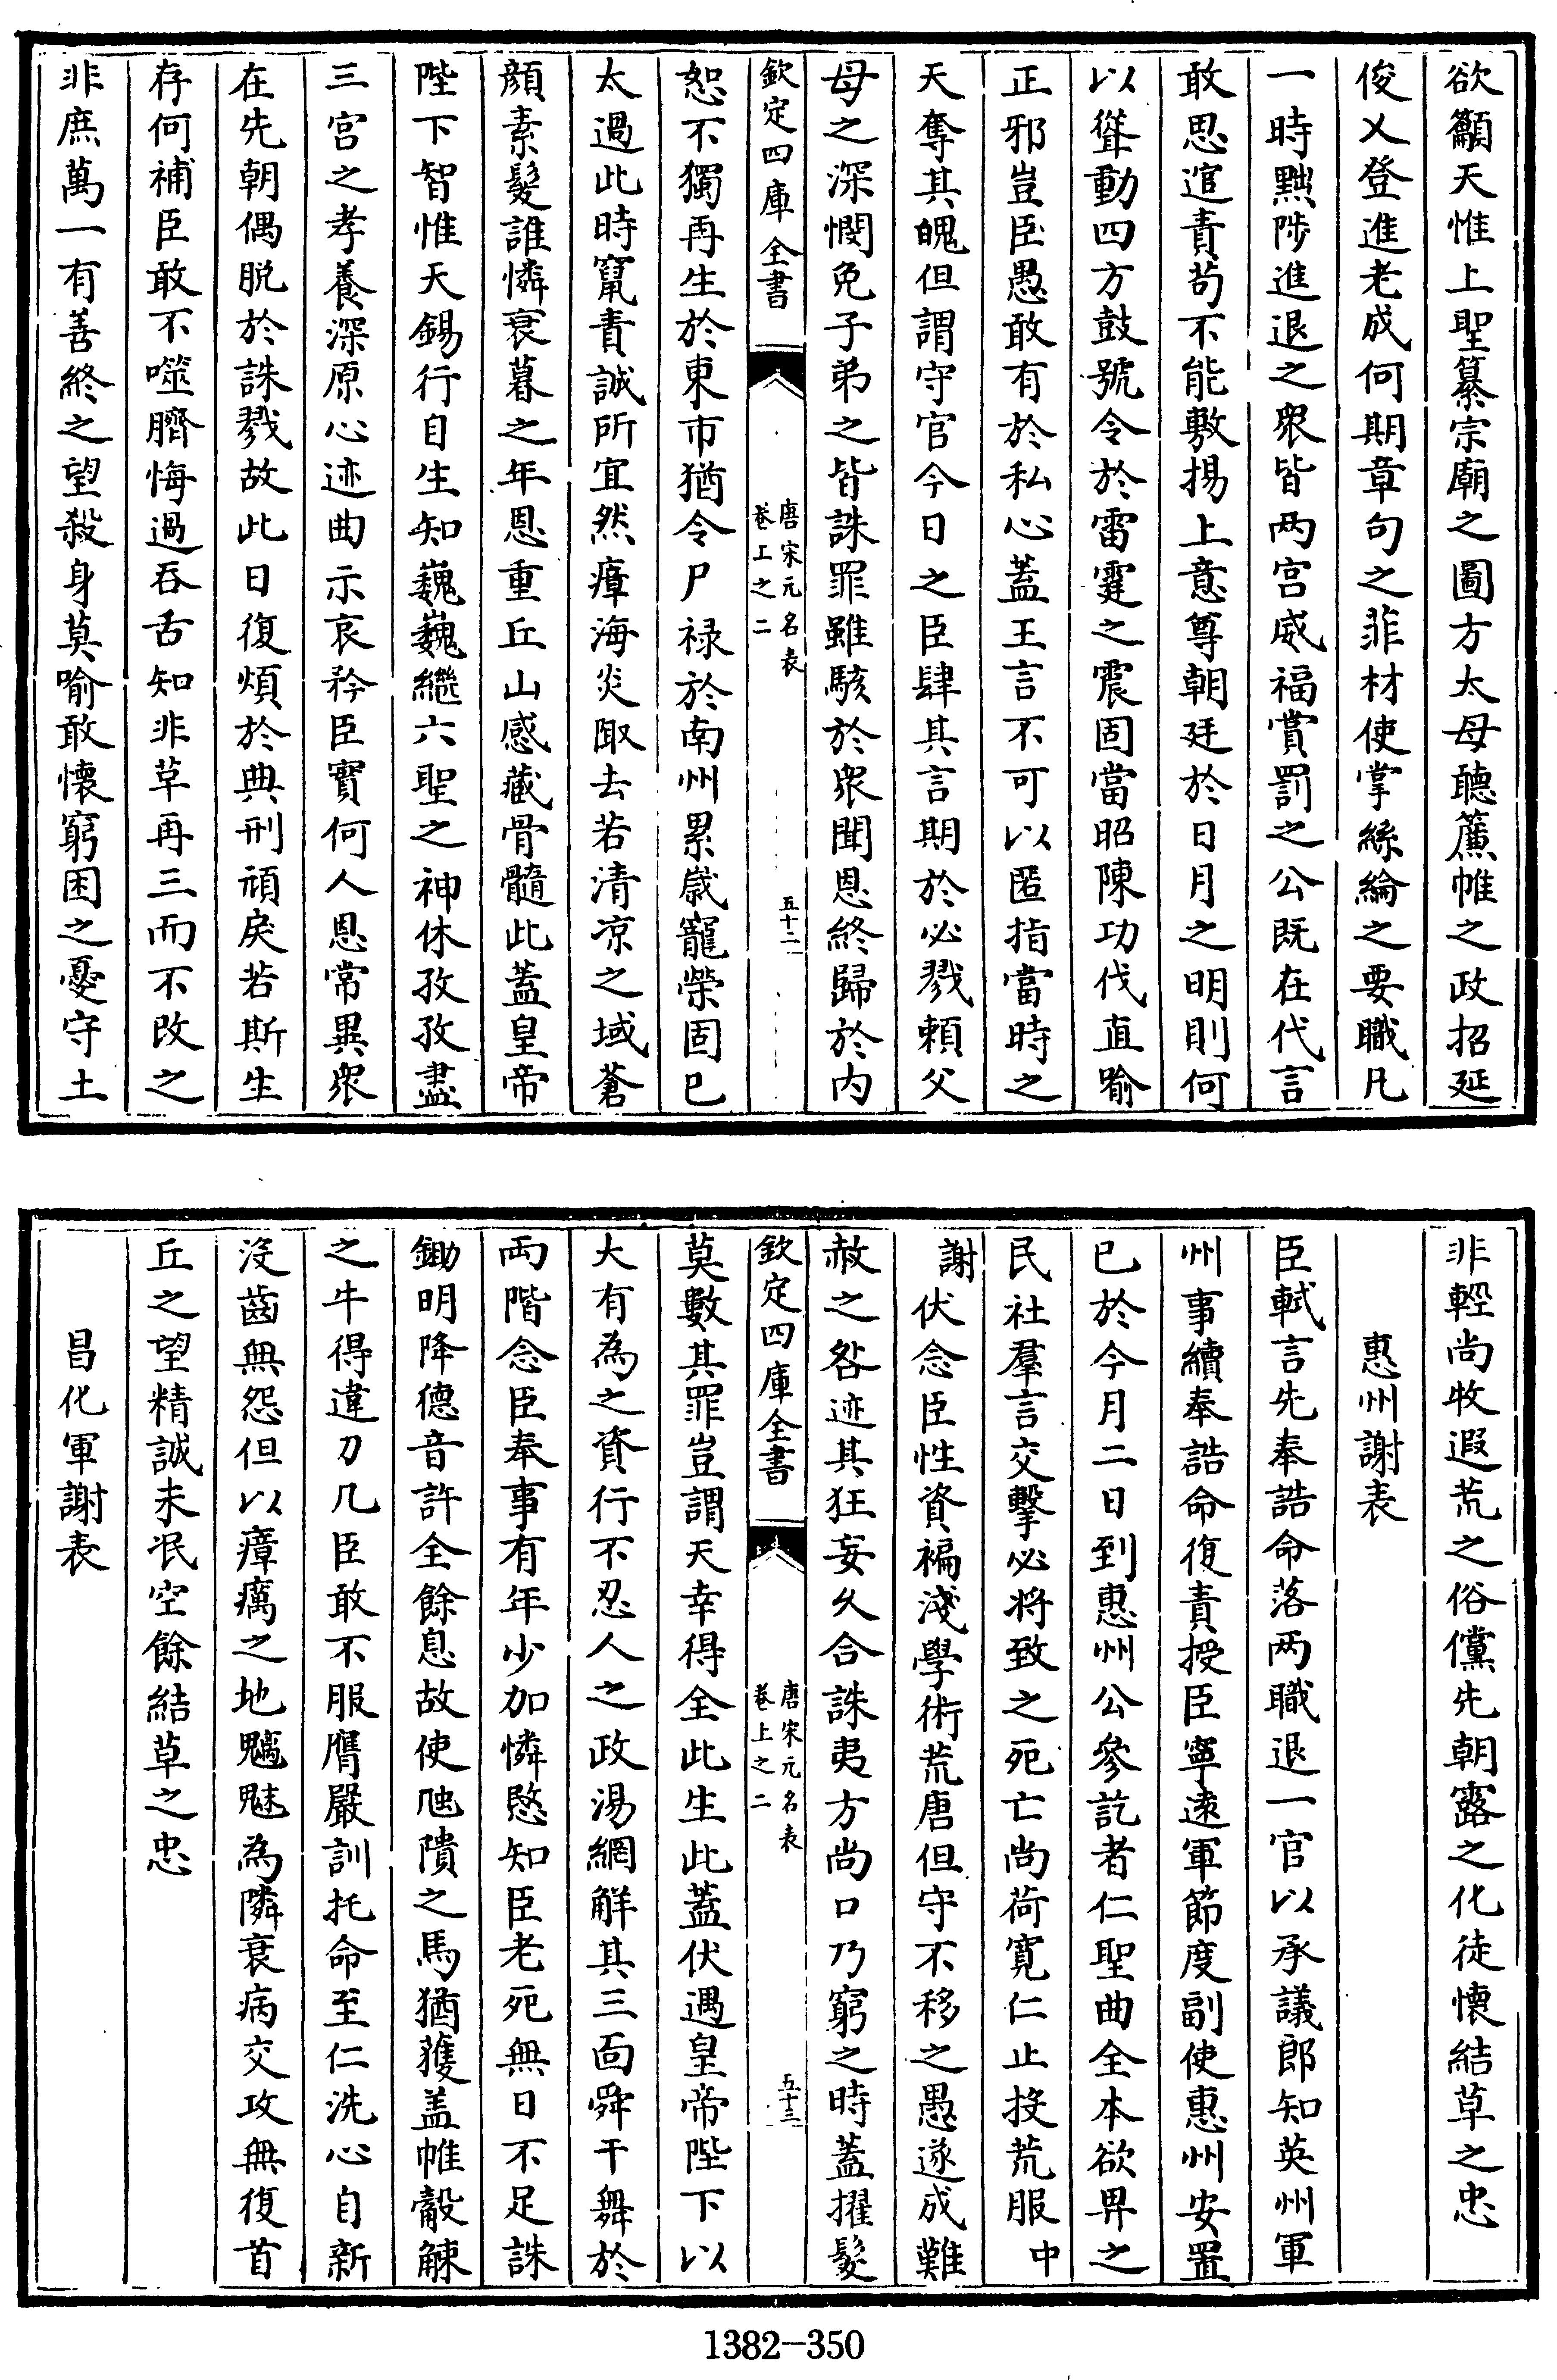 欲籲天惟上聖纂宗廟之圖方太母聽簾帷之政招延
俊乂登進老成何期章句之菲材使掌絲綸之要職凡
一時黜陟進退之衆皆两宫威福賞罰之公既在代言
敢思逭責苟不能敷揚上意尊朝廷於日月之明則何
以聳動四方鼓號令於雷霆之震固當昭陳功伐直喻
正邪豈臣愚敢有於私心蓋王言不可以匿指當時之
天奪其魄但謂守官今日之臣肆其言期於必戮頼父
母之深憫免子弟之皆誅罪雖駭於衆聞恩終歸於内
欽定四庫全書
唐宋元名表
卷上之二
五十二
恕不獨再生於東市猶令尸禄於南州累嵗寵榮固已
太過此時竄責誠所宜然瘴海炎陬去若清凉之域蒼
顔素髮誰憐衰暮之年恩重丘山感藏骨髓此蓋皇帝
陛下智惟天錫行自生知巍巍繼六聖之神休孜孜盡
三宮之孝養深原心迹曲示哀矜臣實何人恩常異衆
在先朝偶脱於誅戮故此日復煩於典刑頑戾若斯生
存何補臣敢不噬臍悔過吞舌知非草再三而不改之
非庶萬一有善終之望殺身莫喻敢懐窮困之憂守土
非輕尚牧遐荒之俗儻先朝露之化徒懐結草之忠
惠州謝表
臣軾言先奉誥命落两職退一官以承議郎知英州軍
州事續奉誥命復責授臣寧逺軍節度副使惠州安置
已於今月二日到惠州公參訖者仁聖曲全本欲畀之
民社羣言交擊必將致之死亡尚荷寛仁止投荒服中
謝伏念臣性資褊淺學術荒唐但守不移之愚遂成難
赦之咎迹其狂妄久合誅夷方尚口乃窮之時蓋擢髮
欽定四庫全書
唐宋元名表
卷上之二
五十三
莫數其罪豈謂天幸得全此生此蓋伏遇皇帝陛下以
大有為之資行不忍人之政湯網解其三面舜干舞於
兩階念臣奉事有年少加憐愍知臣老死無日不足誅
鋤明降德音許全餘息故使虺隤之馬猶獲盖帷觳觫
之牛得違刀几臣敢不服膺嚴訓托命至仁洗心自新
沒齒無怨但以瘴癘之地魑魅為隣衰病交攻無復首
丘之望精誠未泯空餘結草之忠
昌化軍謝表
1382-350